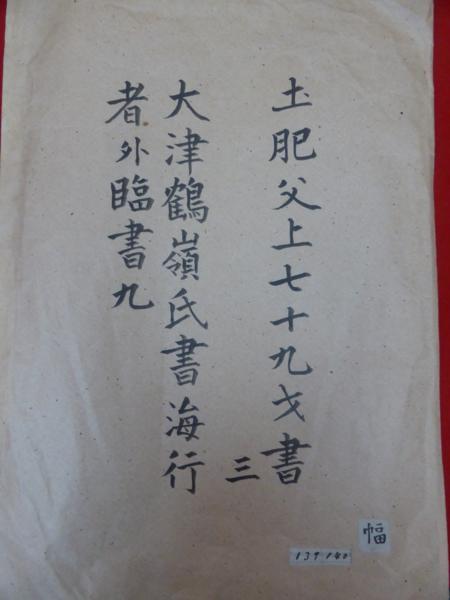 土肥父上七十九才書
三
大津鶴嶺氏書海行
者外臨書九
幅
139 140